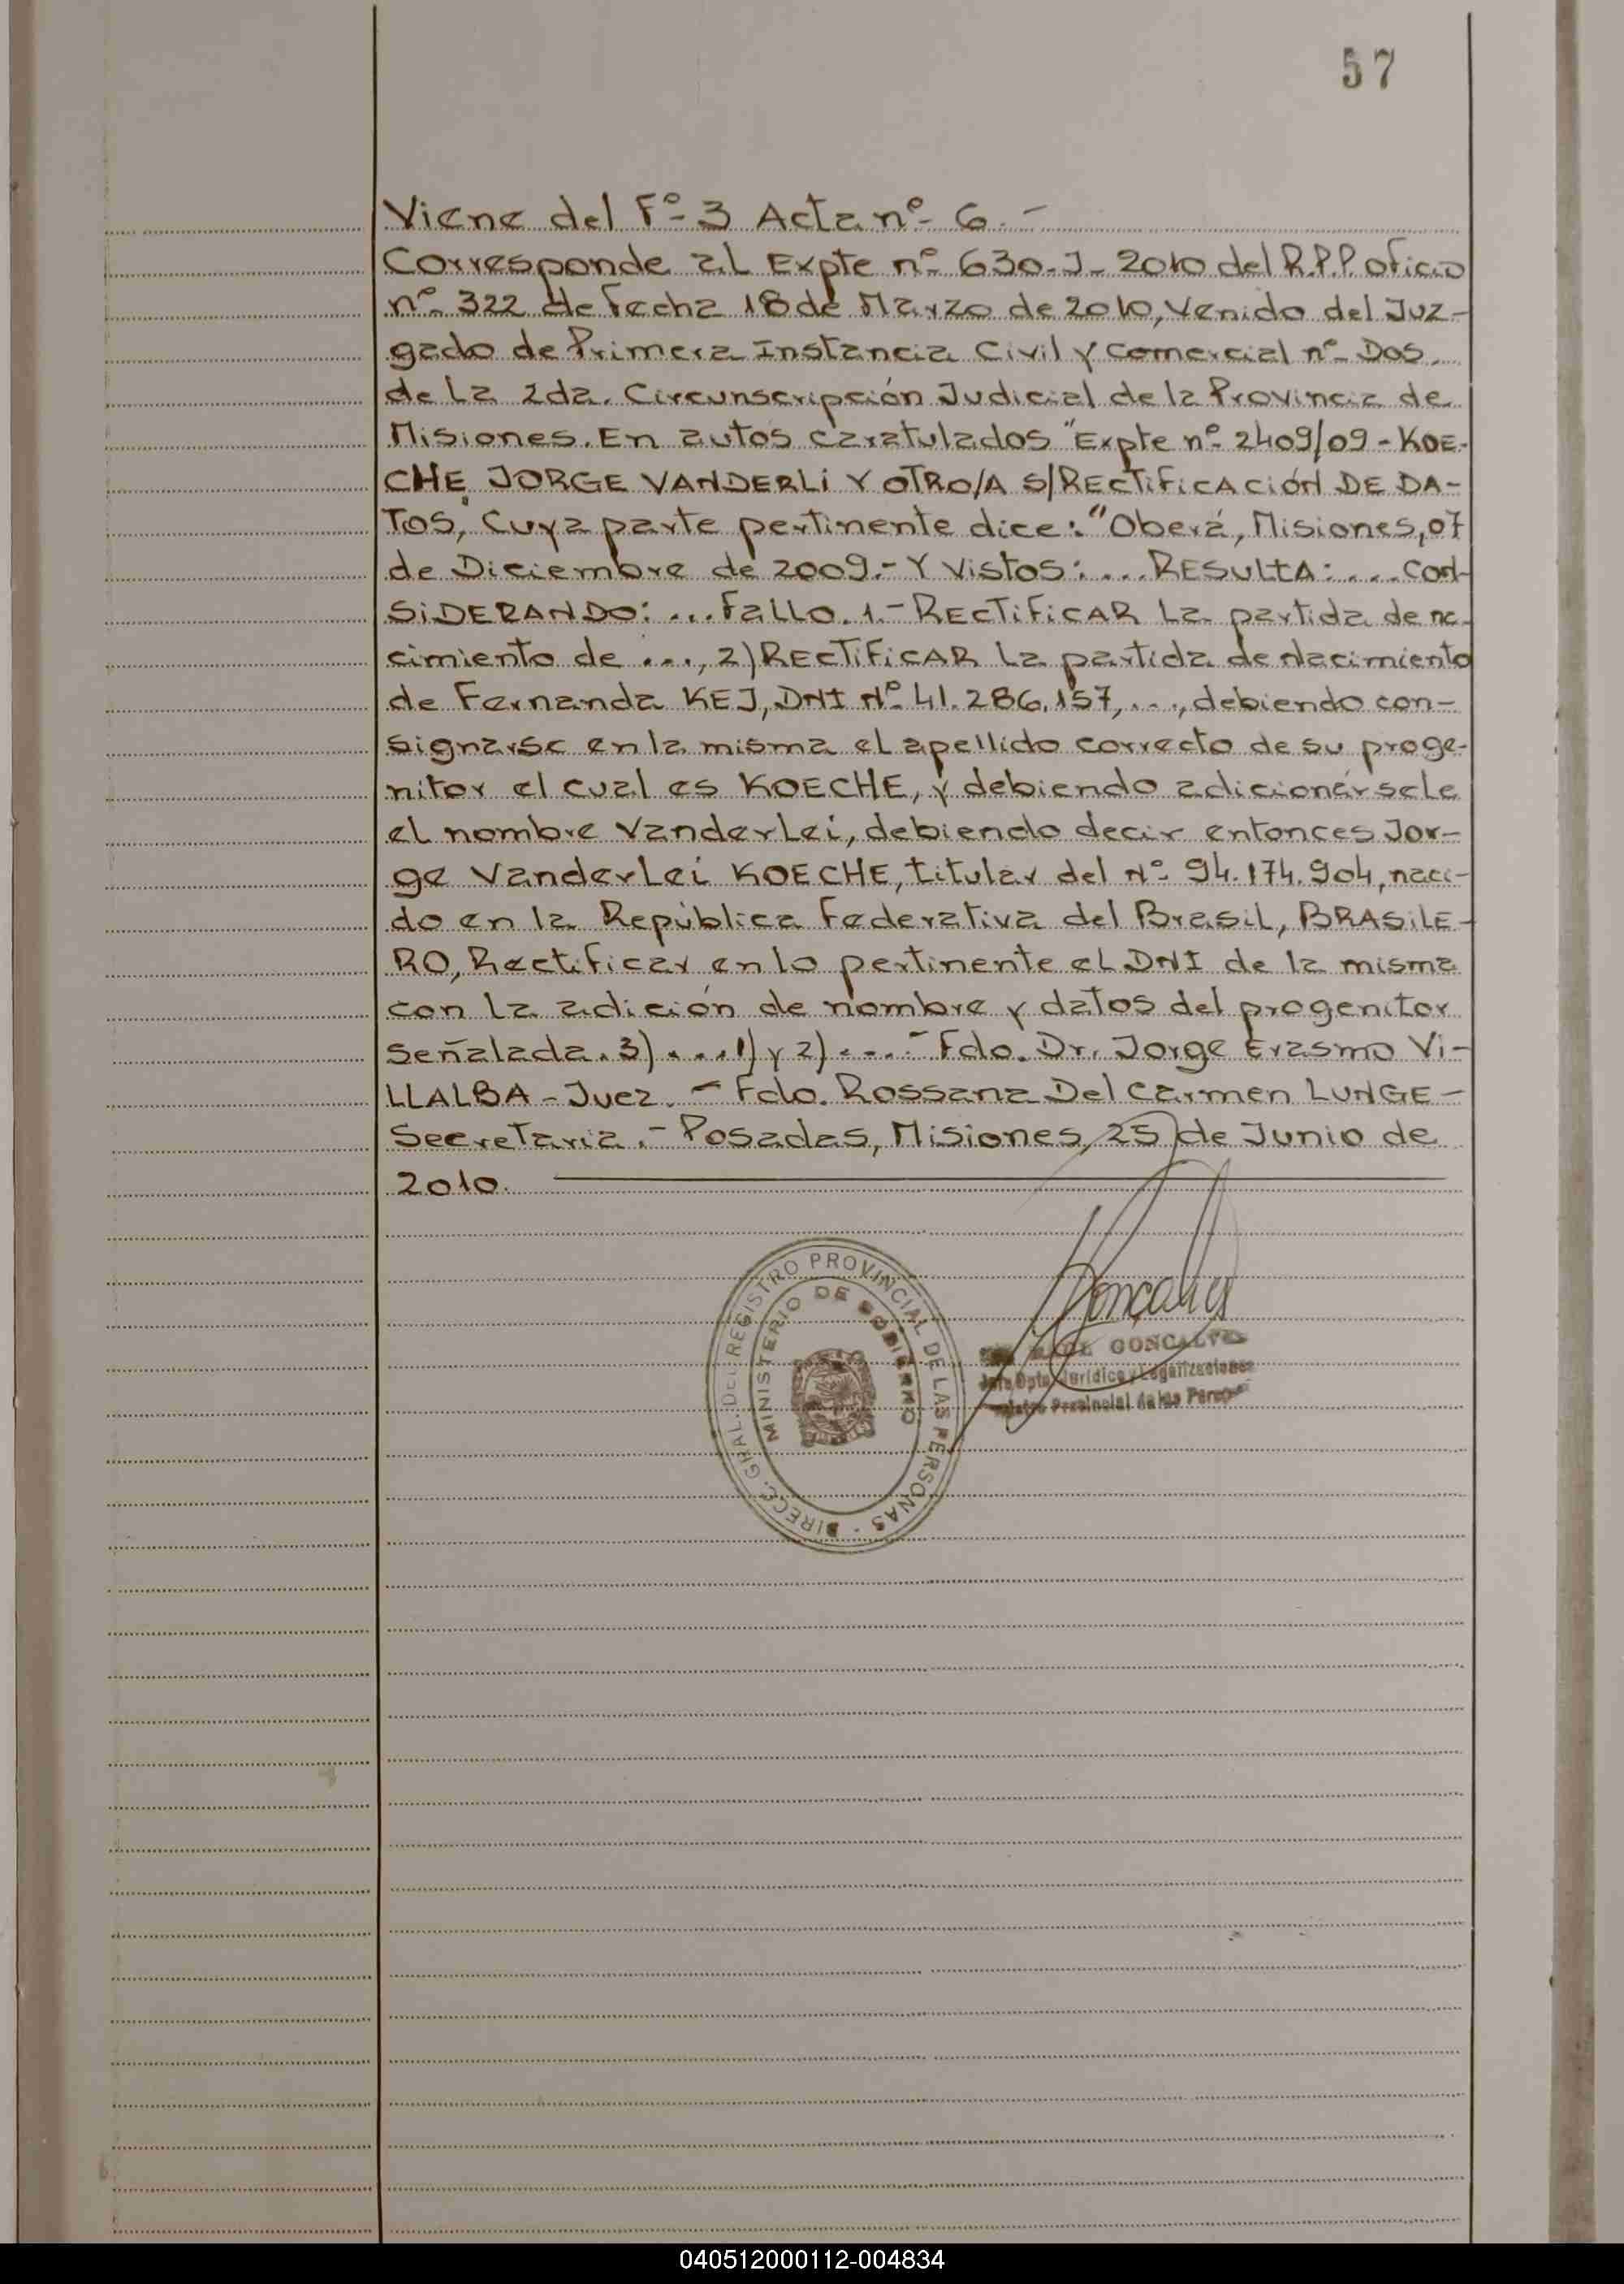 57
Viene del Fº 3 Acta nº 6.-
Corresponde al Expte nº 630-J-2010 del R.P.P. oficio
nº 322 de fecha 18 de Marzo de 2010, venido del Juz-
gado de Primera Instancia Civil y Comercial nº Dos
de la 2da. Circunscripción Judicial de la Provincia de
Misiones. En autos caratulados "Expte nº 2409/09 - KOE-
CHE JORGE VANDERLI Y OTRO/A S/RECTIFICACIÓN DE DA-
TOS", cuya parte pertinente dice: "Oberá, Misiones, 07
de Diciembre de 2009.- Y Vistos: ... RESULTA: .... CON-
SIDERANDO: ... FALLO. 1.- RECTIFICAR la partida de na-
cimiento de ..., 2) RECTIFICAR la partida de Nacimiento
de Fernanda KEJ, DNI Nº 41.286.157, ..., debiendo con-
signarse en la misma el apellido correcto de su proge-
nitor el cual es KOECHE, y debiendo adicionársele
el nombre Vanderlei, debiendo decir entonces Jor-
ge Vanderlei KOECHE, titular del Nº 94.174.904, naci-
do en la República Federativa del Brasil, BRASILE-
RO, Rectificar en lo pertinente el DNI de la misma
con la adición de nombre y datos del progenitor
señalada. 3) .... 1) y 2) ....- Fdo. Dr. Jorge Erasmo Vi-
LLALBA - Juez.- Fdo. Rossana Del Carmen LUNGE -
Secretaria.- Posadas, Misiones, 25 de Junio de
2010.
DIRECC. GRAL. DEL REGISTRO PROVINCIAL DE LAS PERSONAS -
MINISTERIO DE GOBIERNO
Goncalves
GONCALVES
Jefe Dpto. Jurídico y Legalizaciones
Provincial de las Personas
040512000112-004834